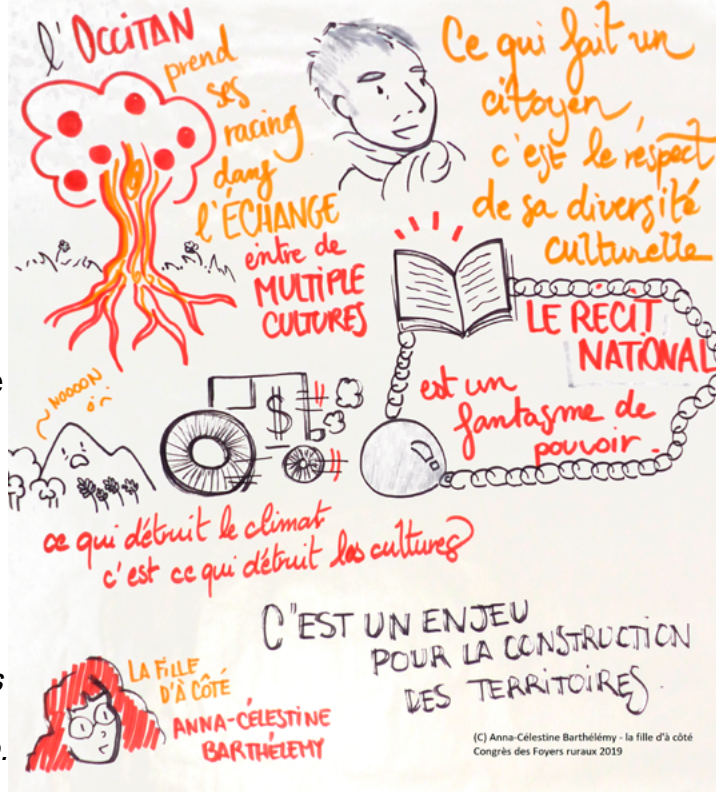 l'OCCITAN
prend
ses
racines
dans
l'ÉCHANGE
entre de
MULTIPLE
CULTURES
Ce qui fait un
citoyen,
c'est le respect
de sa diversité
culturelle
LE RECIT
NATIONAL
est un
fantasme de
pouvoir.
NOOOON
$
ce qui détruit le climat
c'est ce qui détruit les cultures
C'EST UN ENJEU
POUR LA CONSTRUCTION
DES TERRITOIRES.
LA FILLE
D'À CÔTÉ
ANNA-CÉLESTINE
BARTHÉLEMY
(C) Anna-Célestine Barthélémy - la fille d'à côté
Congrès des Foyers ruraux 2019